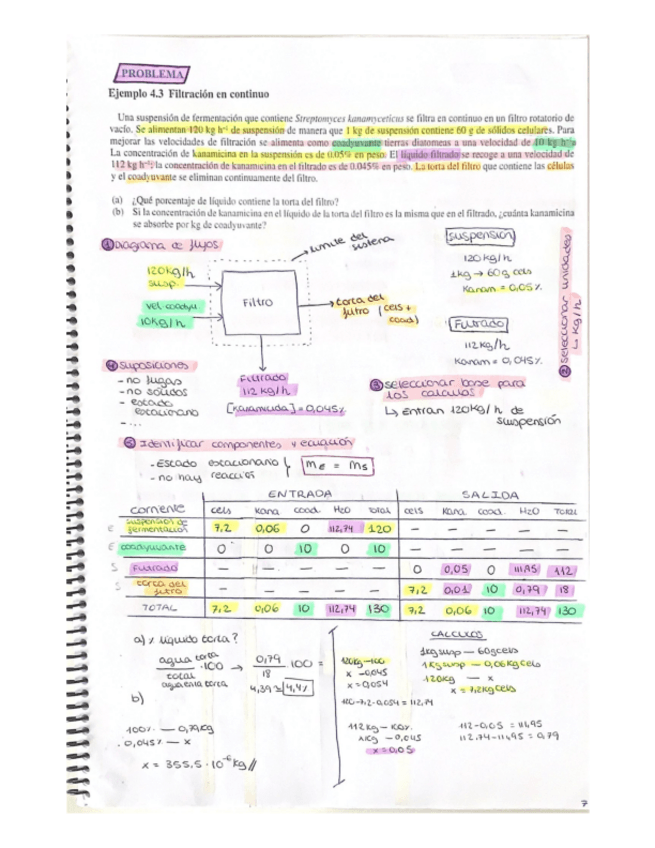 PROBLEMA
Ejemplo 4.3 Filtración en continuo
Una suspensión de fermentación que contiene Streptomyces kanamyceticus se filtra en continuo en un filtro rotatorio de
vacío. Se alimentan 120 kg h⁻¹ de suspensión de manera que 1 kg de suspensión contiene 60 g de sólidos celulares. Para
mejorar las velocidades de filtración se alimenta como coadyuvante tierras diatomeas a una velocidad de 10 kg h⁻¹.
La concentración de kanamicina en la suspensión es de 0.05% en peso. El líquido filtrado se recoge a una velocidad de
112 kg h⁻¹; la concentración de kanamicina en el filtrado es de 0.045% en peso. La torta del filtro que contiene las células
y el coadyuvante se eliminan continuamente del filtro.
(a) ¿Qué porcentaje de líquido contiene la torta del filtro?
(b) Si la concentración de kanamicina en el líquido de la torta del filtro es la misma que en el filtrado, ¿cuánta kanamicina
se absorbe por kg de coadyuvante?
① Diagrama de flujos
Límite del
sistema
120kg/h
susp.
vel. coadyu.
10kg/h
Filtro
torta del
filtro (cels +
coad)
Filtrado
112 kg/h
[kanamicida] = 0,045%
Suspensión
120 kg/h
1kg → 60g cels
Kanam = 0,05%
Filtrado
112kg/h
Kanam = 0,045%
② seleccionar unidades
↳ kg/h
④ suposiciones
- no fugas
- no sólidos
- estado
estacionario
- ...
③ seleccionar base para
los calculos
↳ entran 120kg/h de
suspensión
⑤ Identificar componentes y ecuación
- Estado estacionario
- no hay reacción
me = ms
ENTRADA SALIDA
corriente cels Kana coad. H2O Total cels Kana. coad. H2O TOTAL
E suspensión de
fermentación 7,2 0,06 0 112,74 120 — — — — —
E coadyuvante 0 0 10 0 10 — — — — —
S Filtrado — — — — — 0 0,05 0 111,95 112
S torta del
filtro — — — — — 7,2 0,01 10 0,79 18
TOTAL 7,2 0,06 10 112,74 130 7,2 0,06 10 112,74 130
a) % líquido torta?
agua torta
total
agua en la torta
·100 → 0,79
18
100 =
4,39 ≈ 4,4%
b)
100% — 0,79kg
0,045% — x
x = 355,5 · 10⁻⁶ kg //
120kg — 100
x — 0,045
x = 0,054
120-7,2-0,054 = 112,74
112kg — 100%
x kg — 0,045
x = 0,05
CALCULOS
1kgsusp — 60g cels
1kg susp — 0,06kg cels
120kg — x
x = 7,2kg cels
112-0,05 = 111,95
112,74-111,95 = 0,79
7